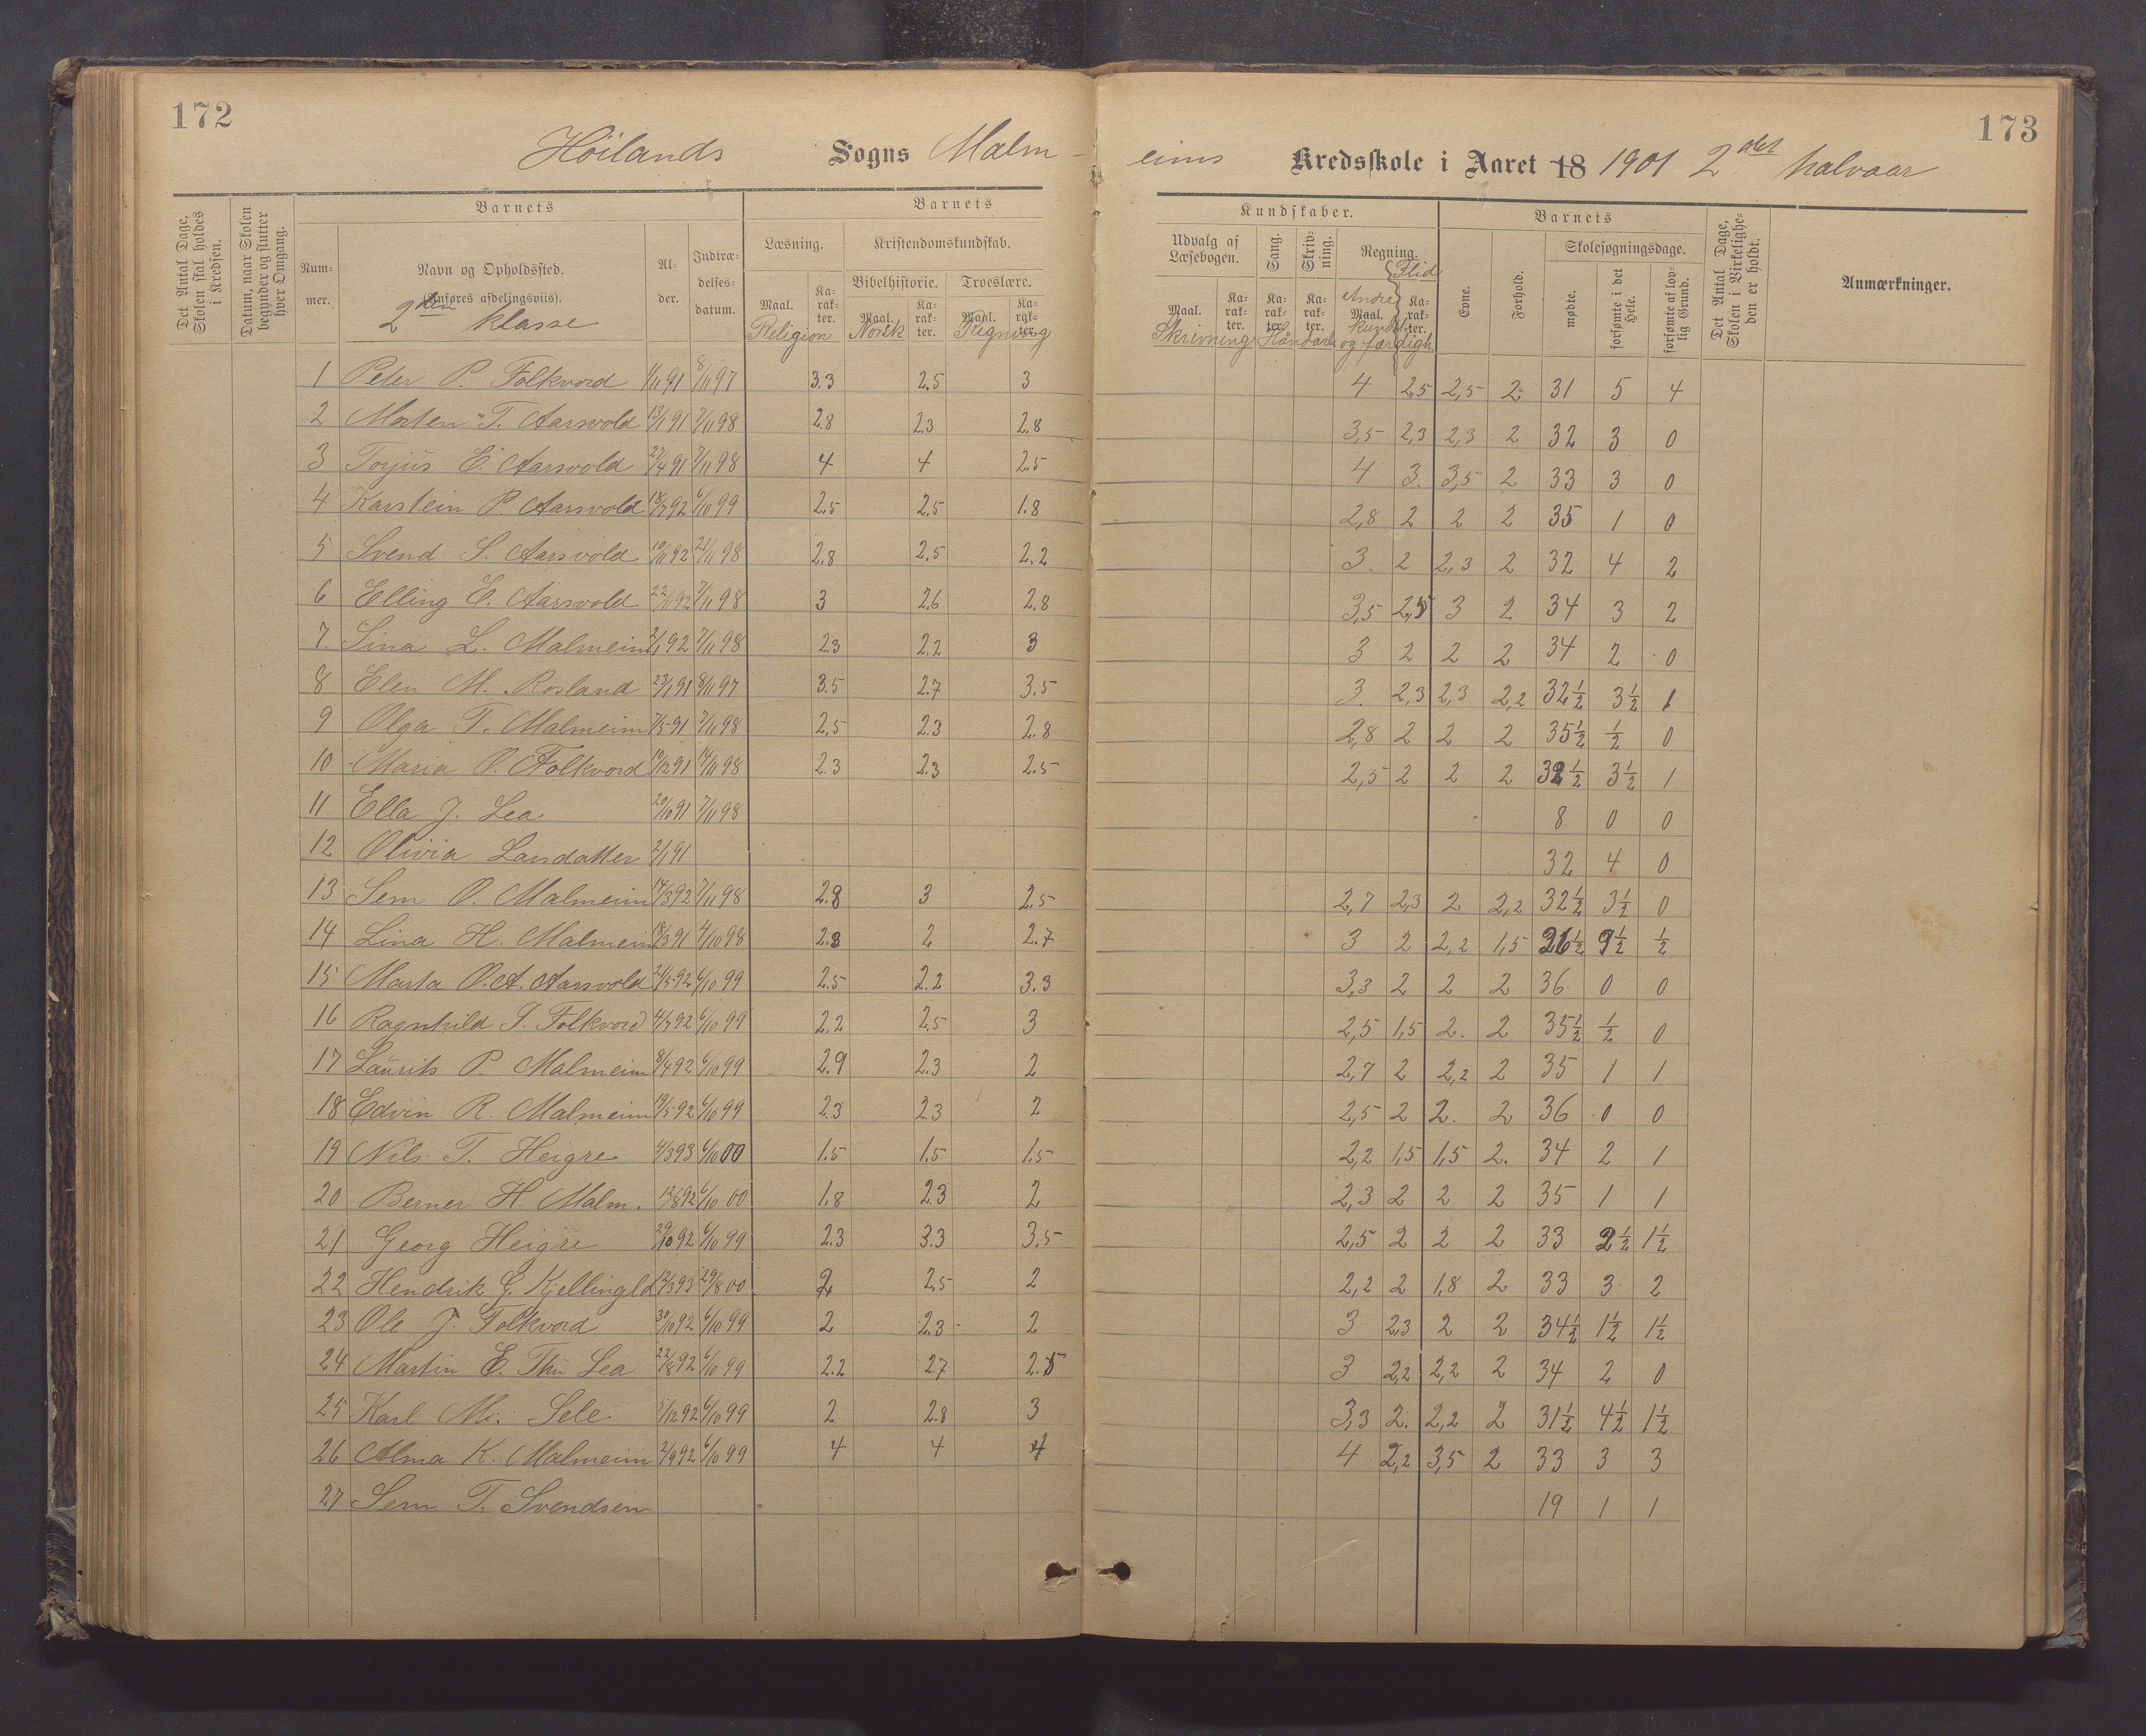 172
Höilands Sogns Malm-
Det Antal Dage, Skolen skal holdes i Kredsen.
Datum, naar Skolen begynder og slutter hver Omgang.
Barnets
Barnets
Nummer.
Navn og Opholdssted.
(Anføres afdelingsviis).
2den klasse
Alder.
Indtrædelsesdatum.
Læsning.
Kristendomskundskab.
Bibelhistorie.
Troeslære.
Maal.
Karakter.
Maal.
Karakter.
Maal.
Karakter.
Religion Norsk Regning
1 Peter P. Folkvord 1/11 91 8/11 97 3.3 2.5 3
2 Morten T. Aarsvold 13/1 91 7/11 98 2.8 2.3 2.8
3 Torjus E. Aarsvold 27/4 91 7/11 98 4 4 2.5
4 Karstein P Aarsvold 18/7 92 6/10 99 2.5 2.5 1.8
5 Svend S. Aarsvold 10/11 92 21/11 98 2.8 2.5 2.2
6 Elling E. Aarsvold 22/11 92 7/11 98 3 2.6 2.8
7. Sina L. Malmeim 2/1 92 7/11 98 2.3 2.2 3
8 Elen M. Rosland 23/1 91 8/11 97 3.5 2.7 3.5
9 Olga T. Malmeim 7/5 91 7/11 98 2,5 2.3 2.8
10 Maria O. Folkvord 19/12 91 14/11 98 2.3 2.3 2.5
11 Ella J. Lea 20/10 91 7/11 98
12 Olivia Larsdatter 2/1 91
13 Sem O. Malmeim 14/3 92 7/11 98 2.8 3 2.5
14 Lina H. Malmeim 18/3 91 4/10 98 2.8 2 2.7
15 Marta O.A. Aarsvold 21/5 92 6/10 99 2.5 2.2 3.3
16 Ragnhild T. Folkvord 4/7 92 6/10 99 2.2 2.5 3
17 Laurits P. Malmeim 8/4 92 6/10 99 2.9 2.3 2
18 Edvin R. Malmeim 19/5 92 6/10 99 2.3 2.3 2
19 Nils T. Heigre 4/3 93 6/10 00 1.5 1.5 1.5
20 Berner H. Malm. 12/8 92 6/10 00 1.8 2.3 2
21 Georg Heigre 29/10 92 6/10 99 2.3 3.3 3.5
22 Hendrik G. Kjellingld 12/3 93 29/8 00 2 2,5 2
23 Ole J. Folkvord 30/10 92 6/10 99 2 2.3 2
24 Martin E. Thu Lea 22/8 92 6/10 99 2.2 2.7 2.5
25 Karl M. Sele 5/12 92 6/10 99 2 2.8 3
26 Alma K. Malmeim 2/9 92 6/10 99 4 4 4
27 Sem T. Svendsen
173
eims Kredsskole i Aaret 18 1901 2det halvaar
Kundskaber.
Barnets
Udvalg af Læsebogen.
Sang.
Skrivning.
Regning.
Flid
Evne.
Forhold.
Skolesøgningsdage.
mødte.
forsømte i det Hele.
forsømte af lovlig Grund.
Det Antal Dage, Skolen i Virkeligheden er holdt.
Anmærkninger.
Maal.
Karakter.
Karakter.
Karakter.
Maal.
Karakter.
Skrivning Håndarb Andre kundsk. og færdigh.
4 2,5 2,5 2 31 5 4
3,5 2,3 2,3 2 32 3 0
4 3. 3,5 2 33 3 0
2,8 2 2 2 35 1 0
3. 2 2,3 2 32 4 2
3,5 2,5 3 2 34 3 2
3 2 2 2 34 2 0
3. 2,3 2,3 2,2 32½ 3½ 1
2,8 2 2 2 35½ ½ 0
2,5 2 2 2 32½ 3½ 1
8 0 0
32 4 0
2,7 2,3 2 2,2 32½ 3½ 0
3 2 2,2 1,5 26½ 9½ ½
3,3 2 2 2 36 0 0
2,5 1,5 2. 2 35½ ½ 0
2,7 2 2,2 2 35 1 1
2,5 2 2. 2 36 0 0
2,2 1,5 1,5 2. 34 2 1
2,3 2 2 2 35 1 1
2,5 2 2 2 33 2½ 1½
2,2 2 1,8 2 33 3 2
3 2,3 2 2 34½ 1½ 1½
3 2,2 2,2 2 34 2 0
3,3 2. 2,2 2 31½ 4½ 1½
4 2,2 3,5 2 33 3 3
19 1 1